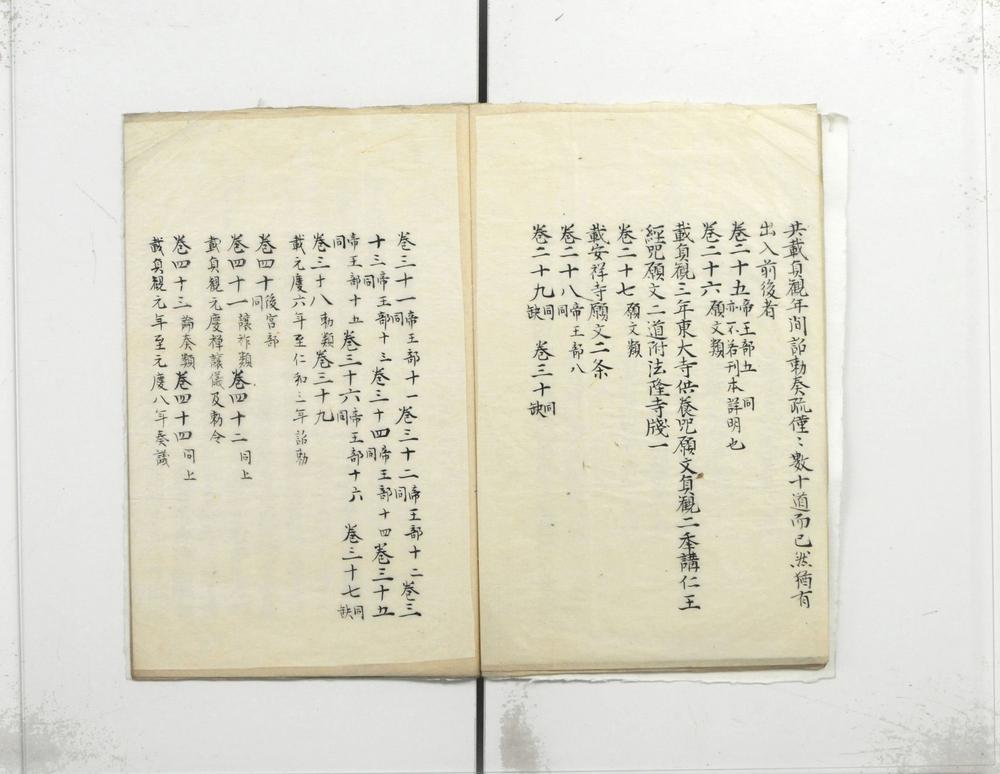 共載貞観年間詔勅奏疏僅〻数十道而已然猶有
出入前後者
巻二十五帝王部五 同亦不若刊本詳明也
巻二十六願文類
載貞観三年東大寺供養咒願文貞観二年講仁王
経咒願文二道附法隆寺牋一
巻二十七願文類
載安祥寺願文二条
巻二十八同帝王部八
巻二十九同缺 巻三十同缺
巻三十一同帝王部十一巻三十二同帝王部十二巻三
十三同帝王部十三巻三十四同帝王部十四巻三十五
同帝王部十五 巻三十六同帝王部十六 巻三十七同缺
巻三十八勅類巻三十九
載元慶六年至仁和三年詔勅
巻四十同後宮部
巻四十一譲祚類巻四十二同上
載貞観元慶禅譲儀及勅令
巻四十三論奏類巻四十四同上
載貞観元年至元慶八年奏議